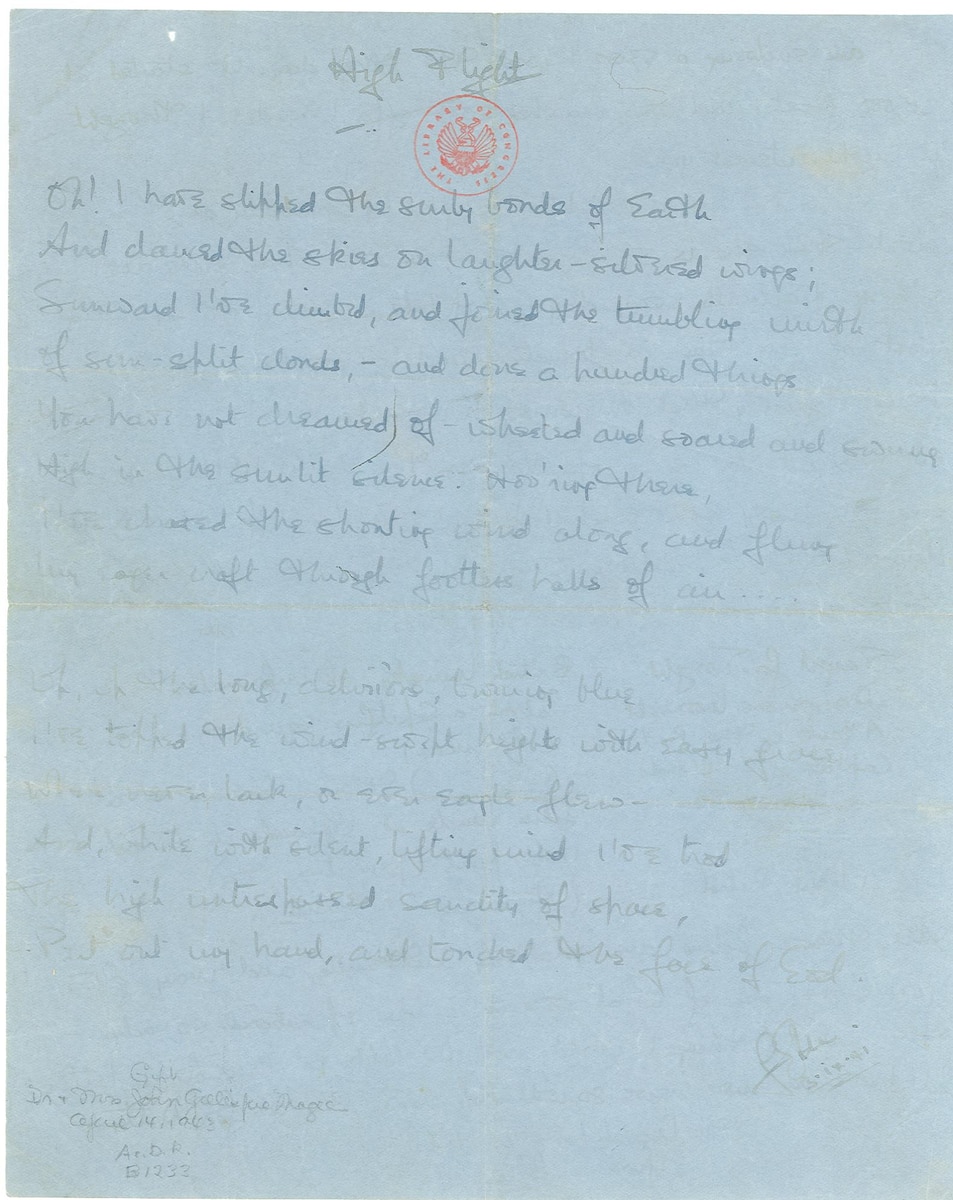 High Flight
THE LIBRARY OF CONGRESS
Oh! I have slipped the surly bonds of Earth
And danced the skies on laughter-silvered wings;
Sunward I've climbed, and joined the tumbling mirth
of sun-split clouds, - and done a hundred things
You have not dreamed of - wheeled and soared and swung
High in the sunlit silence. Hov'ring there,
I've chased the shouting wind along, and flung
My eager craft through footless halls of air.....
Up, up the long, delirious, burning blue
I've topped the wind-swept heights with easy grace
Where never lark, or ever eagle flew-
And, while with silent, lifting mind I've trod
The high untrespassed sanctity of space,
Put out my hand, and touched the face of God.
3·IX·41
Gift
Dr + Mrs John Gillespie Magee
April 14, 1943
Ac. D. R.
B1233